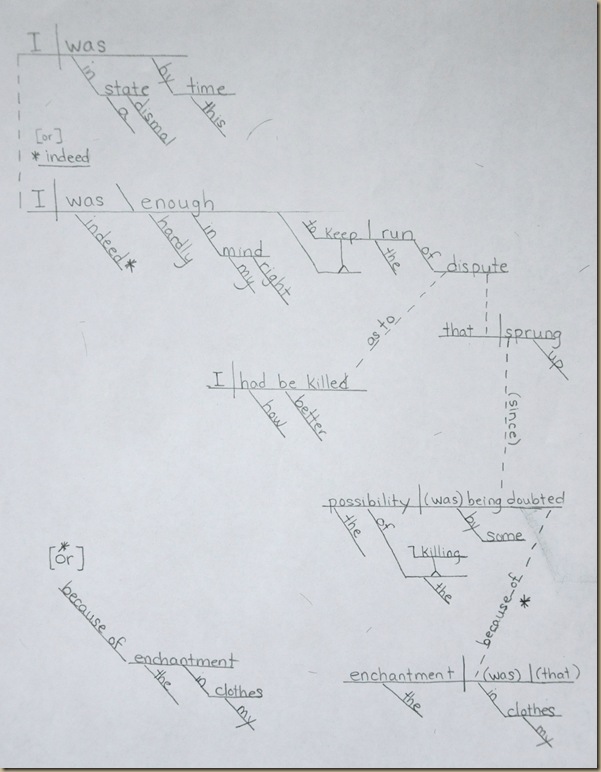 I was
in state by time
a dismal this
[or]
* indeed
I was enough
indeed* hardly in mind my right
to keep run the of dispute
as to
that sprung up
I had be killed
how better
(since)
possibility (was) being doubted
the of killing the by some
[or]
*
because of enchantment
the in clothes
my
because of *
enchantment (was) (that)
the in clothes
my